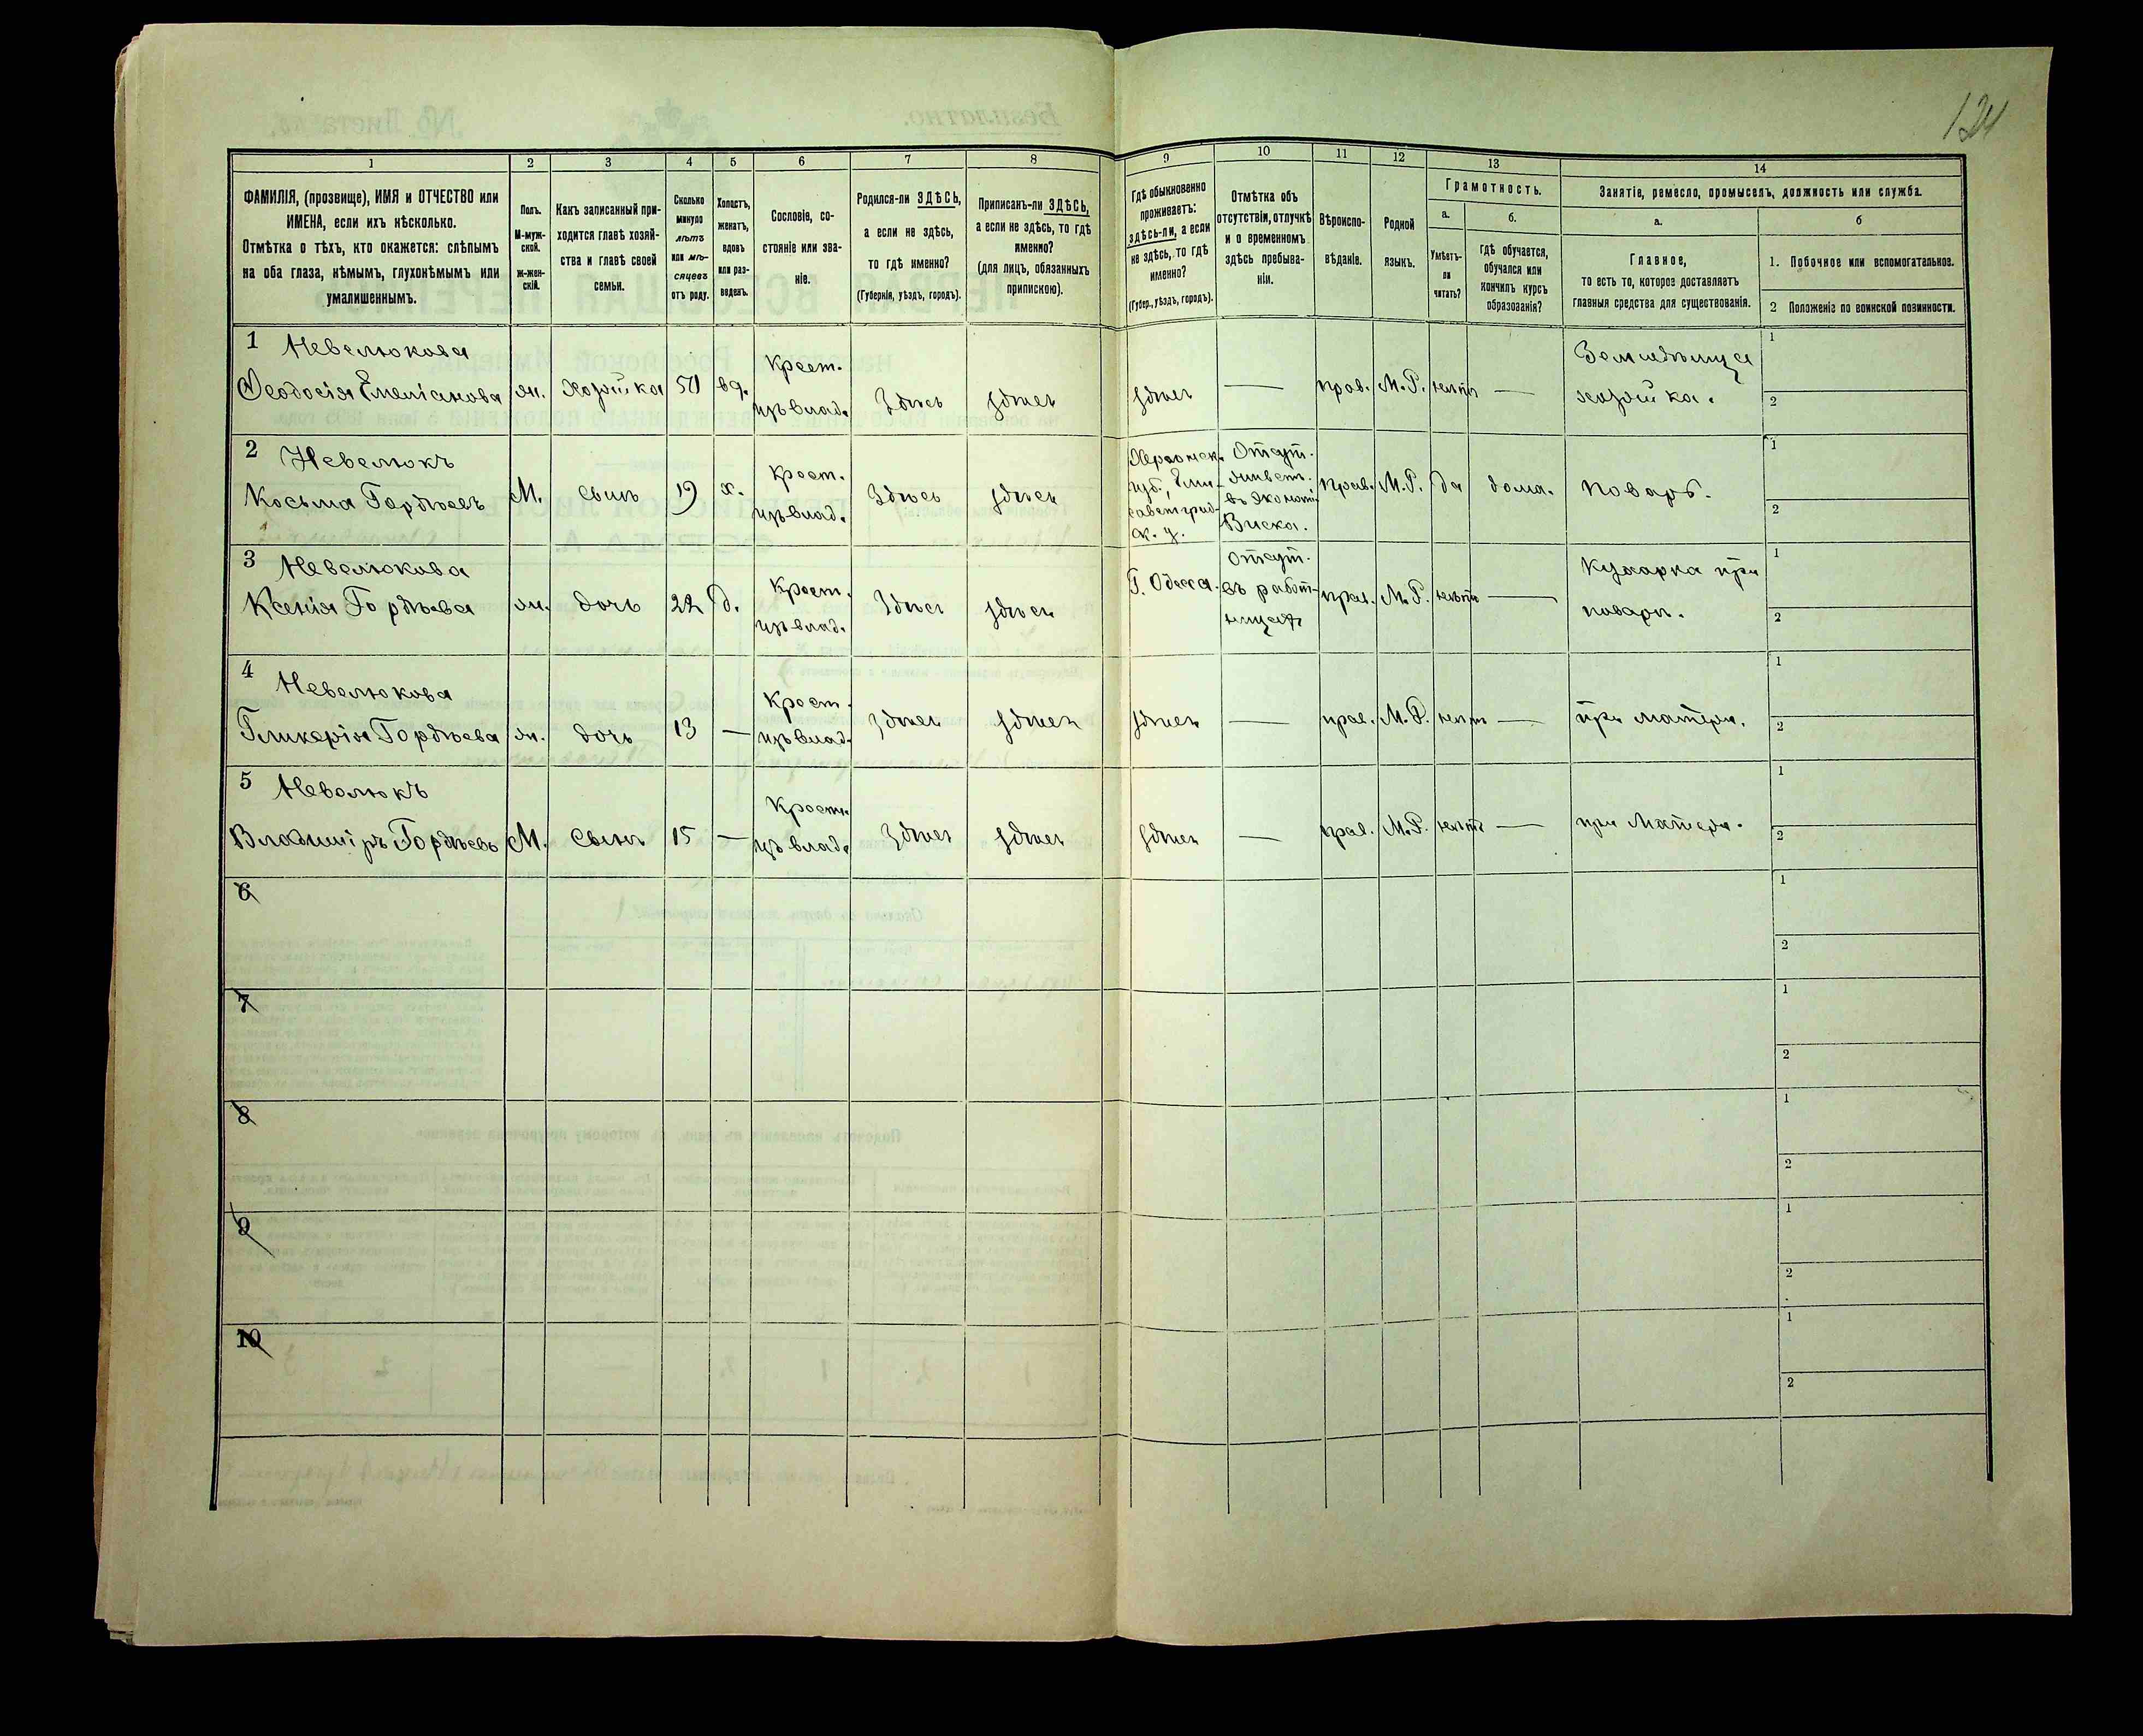 124
1 2 3 4 5 6 7 8 9 10 11 12 13 14
ФАМИЛІЯ, (прозвище), ИМЯ и ОТЧЕСТВО или
ИМЕНА, если ихъ нѣсколько.
Отмѣтка о тѣхъ, кто окажется: слѣпымъ
на оба глаза, нѣмымъ, глухонѣмымъ или
умалишеннымъ.
Полъ.
М-муж-
ской.
ж-жен-
скій.
Какъ записанный при-
ходится главѣ хозяй-
ства и главѣ своей
семьи.
Сколько
минуло
лѣтъ
или мѣ-
сяцевъ
отъ роду.
Холостъ,
женатъ,
вдовъ
или раз-
веденъ.
Сословіе, со-
стояніе или зва-
ніе.
Родился-ли ЗДѢСЬ,
а если не здѣсь,
то гдѣ именно?
(Губернія, уѣздъ, городъ).
Приписанъ-ли ЗДѢСЬ,
а если не здѣсь, то гдѣ
именно?
(для лицъ, обязанныхъ
припискою).
Гдѣ обыкновенно
проживаетъ:
здѣсь-ли, а если
не здѣсь, то гдѣ
именно?
(Губер., уѣздъ, городъ).
Отмѣтка объ
отсутствіи, отлучкѣ
и о временномъ
здѣсь пребыва-
ніи.
Вѣроиспо-
вѣданіе.
Родной
языкъ.
Грамотность.
а.
Умѣетъ-
ли
читать?
б.
гдѣ обучается,
обучался или
кончилъ курсъ
образованія?
Занятіе, ремесло, промыселъ, должность или служба.
а.
Главное,
то есть то, которое доставляетъ
главныя средства для существованія.
б
1. Побочное или вспомогательное.
2 Положеніе по воинской повинности.
1 Невелюкова
Ѳеодосія Емеліанова
ж.
Хозяйка
50
вд.
Крест.
изъ влад.
Здѣсь
здѣсь
здѣсь
—
прав.
М.Р.
нѣтъ
—
Земледѣлица
хозяйка.
1
2
2 Невелюкъ
Косьма Гордѣевъ
М.
сынъ
19
х.
Крест.
изъ влад.
Здѣсь
здѣсь
Херсонск.
губ., Ели-
саветград-
к. у.
Отсут-
ствіетъ
въ экономі
Виска.
прав.
М.Р.
да
дома.
поваръ.
1
2
3 Невелюкова
Ксенія Гордѣева
ж.
дочь
22
д.
Крест.
изъ влад.
Здѣсь
здѣсь
Г. Одесса.
Отсут.
въ работ-
ницахъ
прав.
М.Р.
нѣтъ
—
Кухарка при
поварѣ.
1
2
4 Невелюкова
Гликерія Гордѣева
ж.
дочь
13
—
Крест.
изъ влад.
здѣсь
здѣсь
здѣсь
—
прав.
М.Р.
нѣтъ
—
при матери.
1
2
5 Невелюкъ
Владиміръ Гордѣевъ
М.
сынъ
15
—
Крест.
изъ влад.
Здѣсь
здѣсь
здѣсь
—
прав.
М.Р.
нѣтъ
—
при матери.
1
2
6
1
2
7
1
2
8
1
2
9
1
2
10
1
2